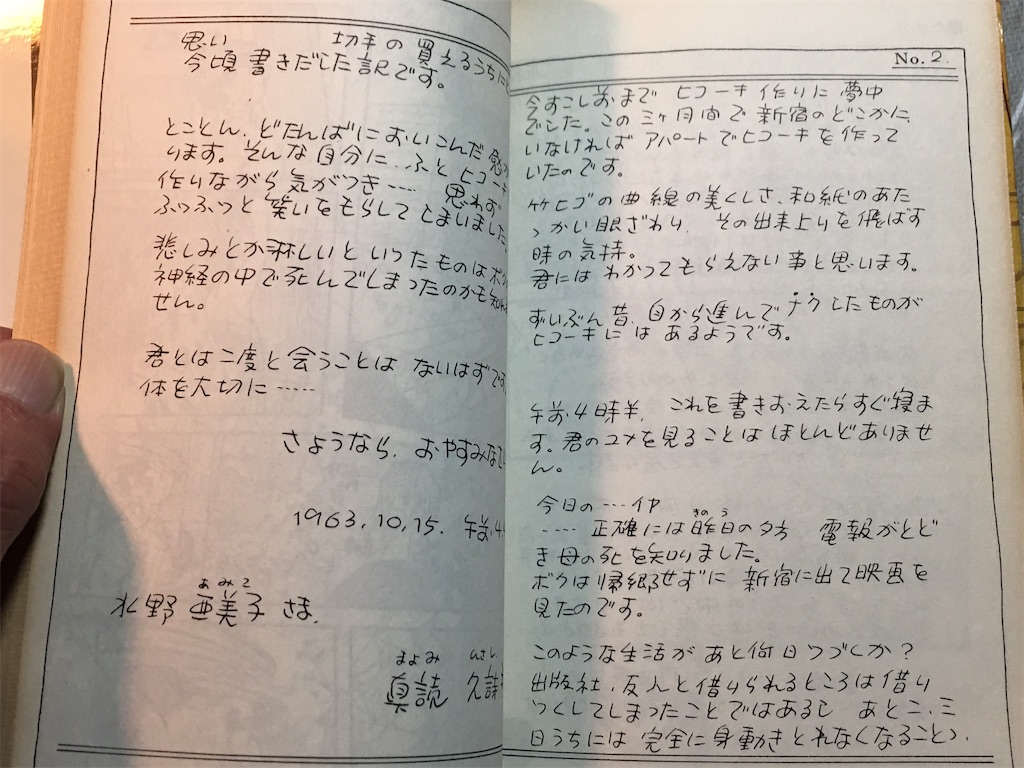 No. 2.
今すこしまえまで ヒコーキ作りに 夢中
でした。この三ヶ月間で新宿のどこかに
いなければ アパートでヒコーキを作って
いたのです。
竹ヒゴの曲線の美くしさ、和紙のあた
ゝかい眼ざわり、その出来上りを飛ばす
時の気持。
君には わかってもらえない事と思います。
ずいぶん昔、自から進んでナクしたものが
ヒコーキにはあるようです。
午前.4時半、これを書きおえたらすぐ寝ま
す。君のユメを見ることはほとんどありませ
ん。
今日の……イヤ
…… 正確には昨日の夕方 電報がとど
きのう
き母の死を知りました。
ボクは帰郷せずに 新宿に出て映画を
見たのです。
このような生活が あと何日つづくか?
出版社、友人と借りられるところは借り
つくしてしまったことではあるし あと二、三
日うちには 完全に身動きとれなくなることゝ、
思い 切手の買えるうちに
今頃書きだした訳です。
とことん、どたんばにおいこんだ感
ります。そんな自分に‥ふとヒコーキ
作りながら気がつき…… 思わず
ふつふつと笑いをもらしてしまいました
悲しみとか淋しいといったものはボク
神経の中で死んでしまったのかも知れ
せん。
君とは二度と会うことは ないはずです
体を大切に……
さようなら、おやすみな
1963.10.15. 午前.4
あみこ
水野 亜美子 さま、
まよみ
眞読 久